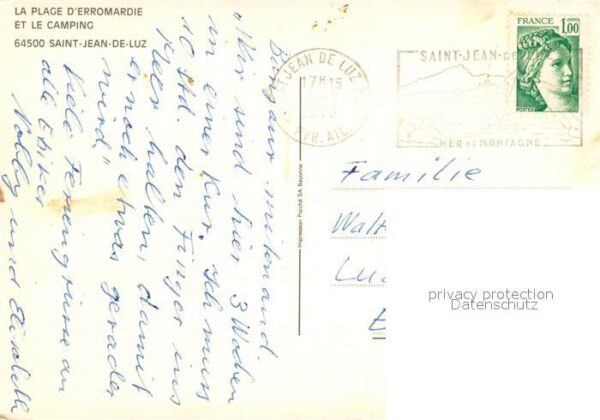 LA PLAGE D'ERROMARDIE
ET LE CAMPING
64500 SAINT-JEAN-DE-LUZ
Bonjour mitenand.
Wir sind hier 3 Wochen
in einer Kur. Ich muss
10 Std. den Finger ins
Meer halten, damit
er noch etwas gerader
wird."
Viele Feriengrüsse an
alli
Nelly und
Impression Porché SA Bayonne
ST JEAN DE LUZ
17H15
1979
PYR. ATL.
SAINT-JEAN-DE
MER ET MONTAGNE
FRANCE
1,00
POSTES
Familie
Walt
Lu
privacy protection
Datenschutz